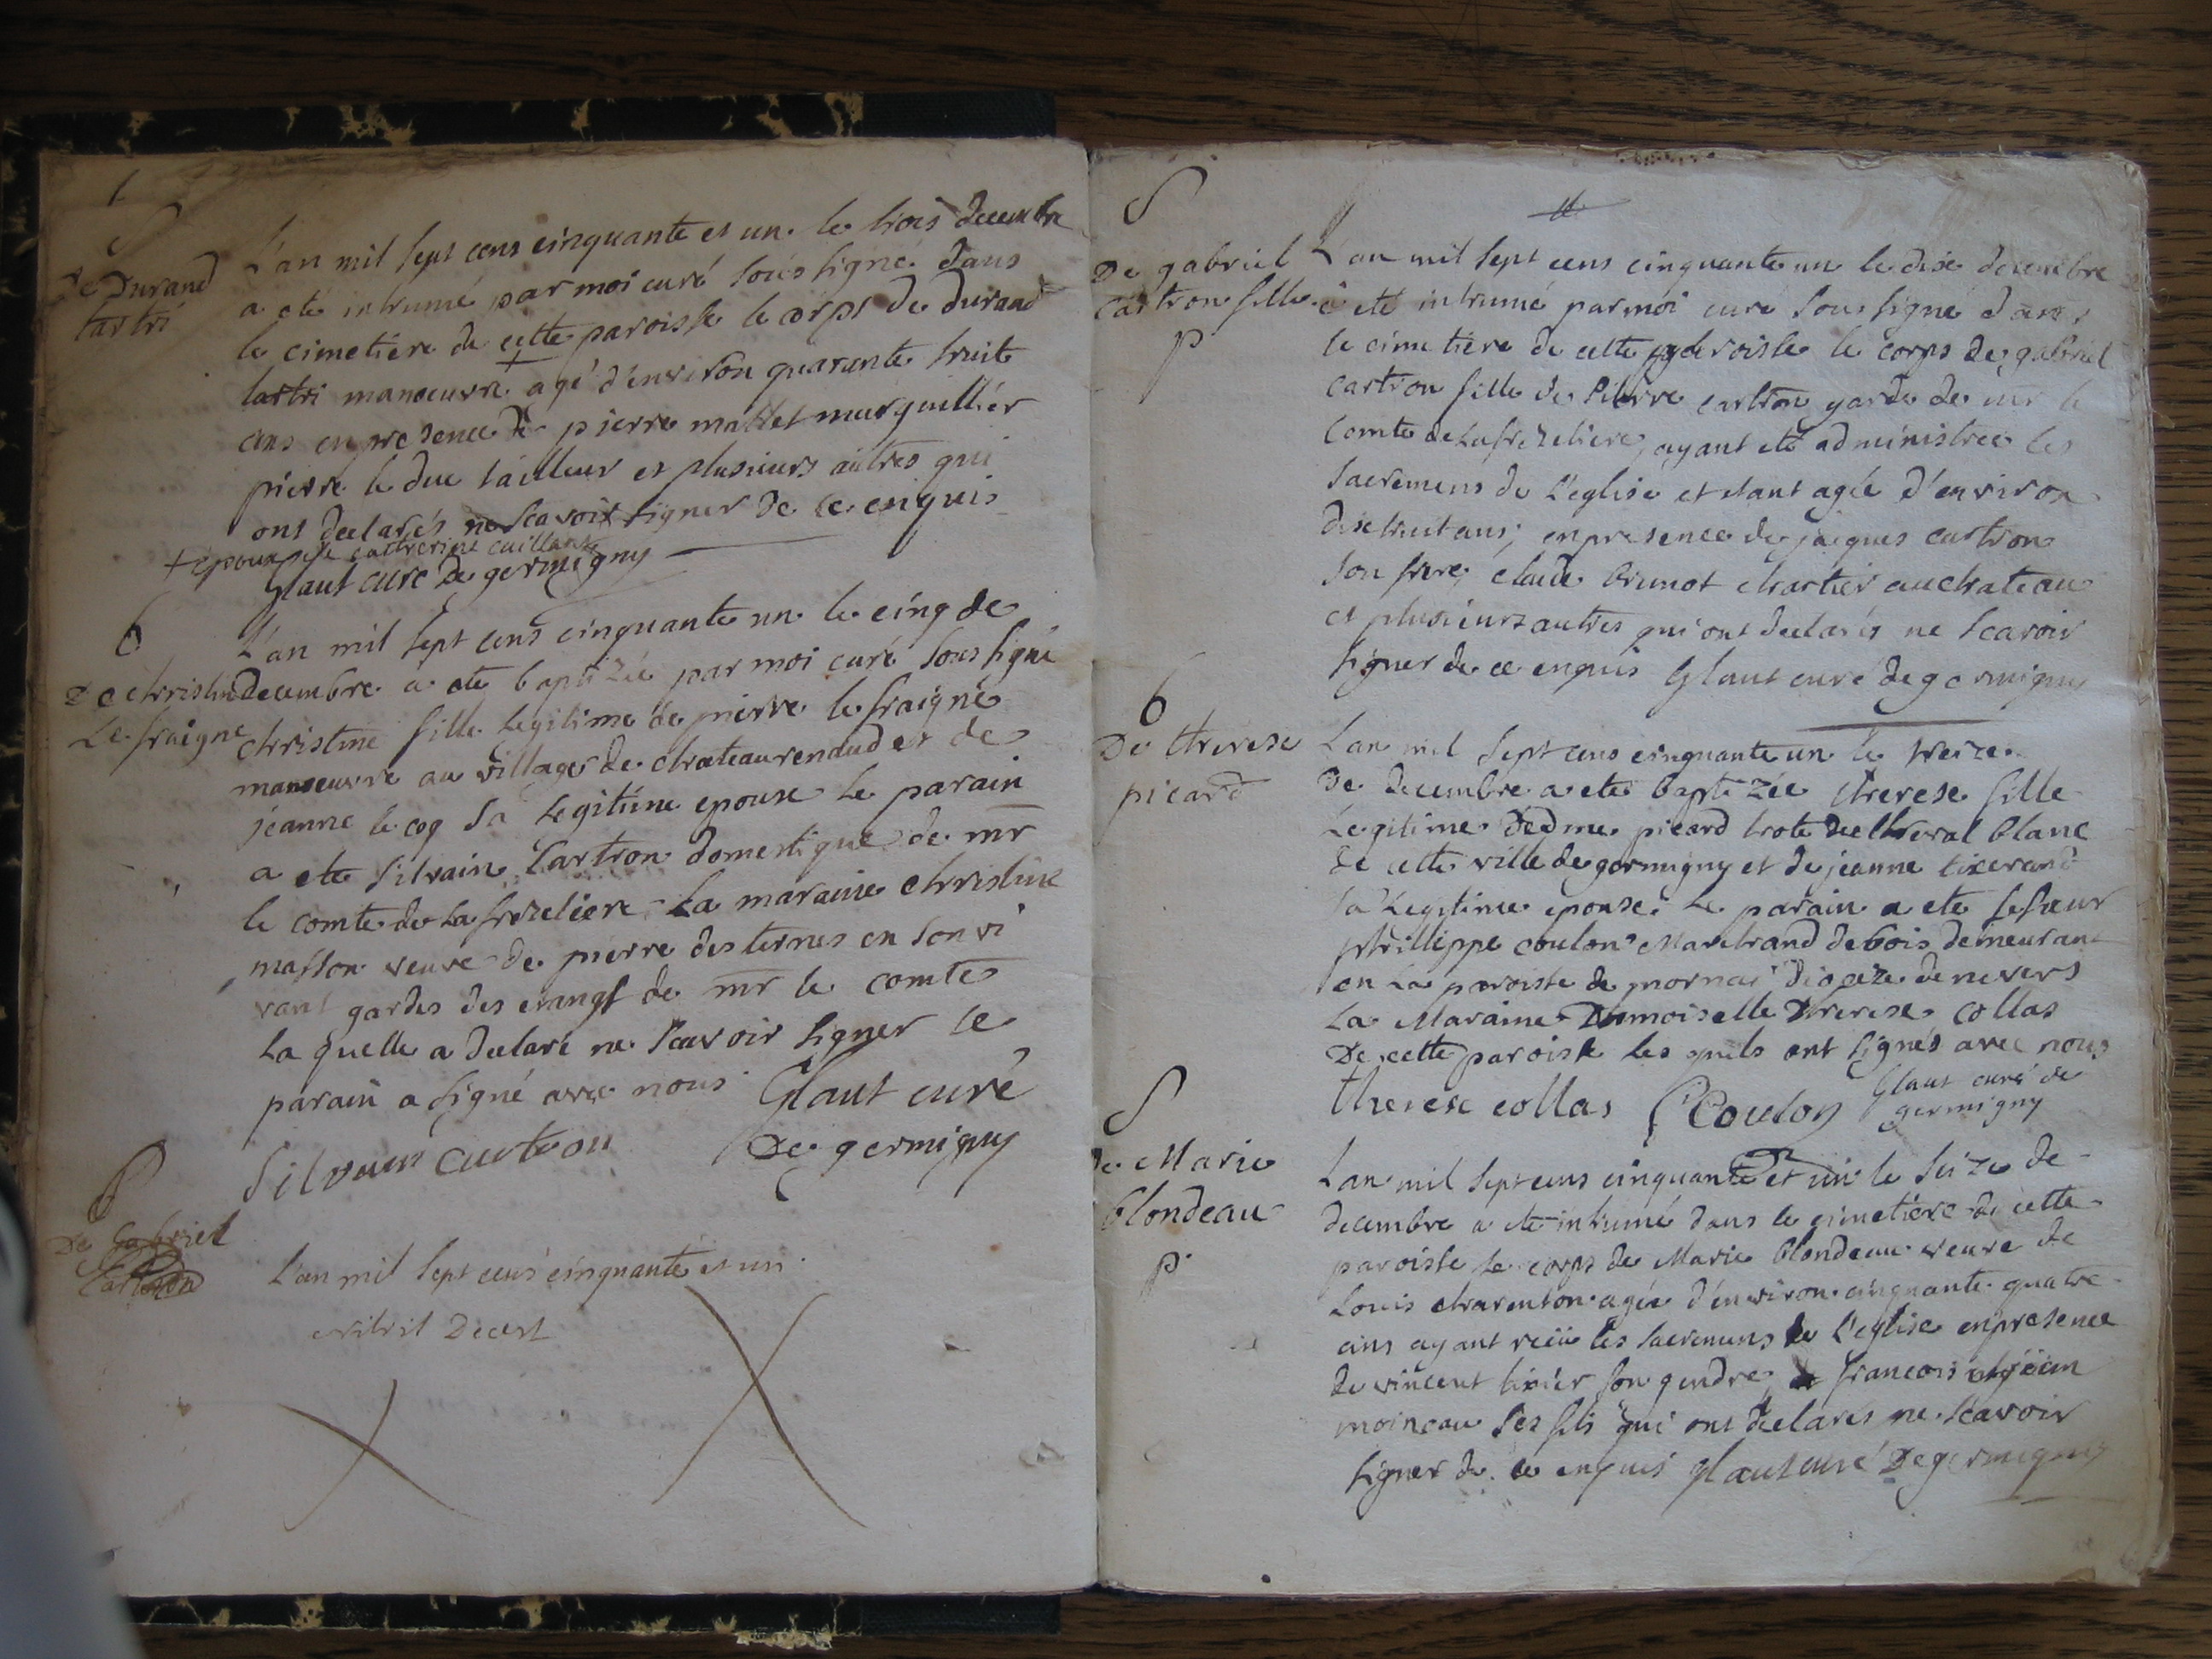 S
de Durand
tartri
L'an mil sept cens cinquante et un le trois decembre
a eté inhumé par moi curé sousigné dans
le cimetiere de cette paroisse le corps de durand
tartri manoeuvre + agé d'environ quarante huit
ans en presence de pierre mattet marguillier
pierre le duc tailleur et plusieurs autres qui
ont declarés ne scavoir signer de ce enquis
+ epoux de catherine caillaut
Glaut curé de germigny
b
De christine
Le fraigne
L'an mil sept cens cinquante un le cinq de
decembre a eté baptizée par moi curé sousigné
christine fille legitime de pierre le fraigne
manoeuvre au village de chateaurenaud et de
jeanne le coq sa legitime epouse le parain
a eté silvain Cartron domestique de mr
le comte de la frezeliere La maraine christine
masson veuve de pierre des ternes en son vi
vant gardes des etangs de mr le comte
La quelle a declaré ne scavoir signer le
parain a signé avec nous Glaut curé
Silvain cartron De germigny
De Gabriel
Cartron
L'an mil sept cens cinquante et un
S
De gabriel
Cartron fille
p
L'an mil sept cens cinquante un le dixe decembre
a eté inhumé par moi curé sous signé dans
le cimetiere de cette paroisse le corps de gabriel
cartron fille de Pierre cartron garde de mr le
Comte de Lafrezeliere, ayant eté administree les
sacremens de l'eglise et etant agée d'environ
dixe huit ans, en presence de jacques cartron
son frere, claude brunot chartier au chateau
et plusieurs autres qui ont declarés ne scavoir
signer de ce enquis Glaut curé de germigny
b
De therese
picard
L'an mil sept cens cinquante un le treize
de decembre a eté baptizée therese fille
Legitime d'edme picard hote du cheval blanc
de cette ville de germigny et de jeanne tixerand
sa Legitime epouse. Le parain a eté le sieur
phillippe coulon Marchand de bois demeurant
en La paroisse de mornai dioceze de nevers
La Maraine Demoiselle therese collas
De cette paroisse les quels ont signés avec nous
therese collas P Coulon Glaut curé de
germigny
S
de Marie
blondeau
p
L'an mil sept cens cinquante et un le seize de
decembre a eté inhumé dans le cimetiere de cette
paroisse le corps de Marie blondeau veuve de
Louis charenton agée d'environ cinquante quatre
ans ayant reçu les sacremens de l'eglise en presence
de vincent tixier son gendre, francois
moineau ses fils qui ont declarés ne scavoir
signer de ce enquis glaut curé De germigny